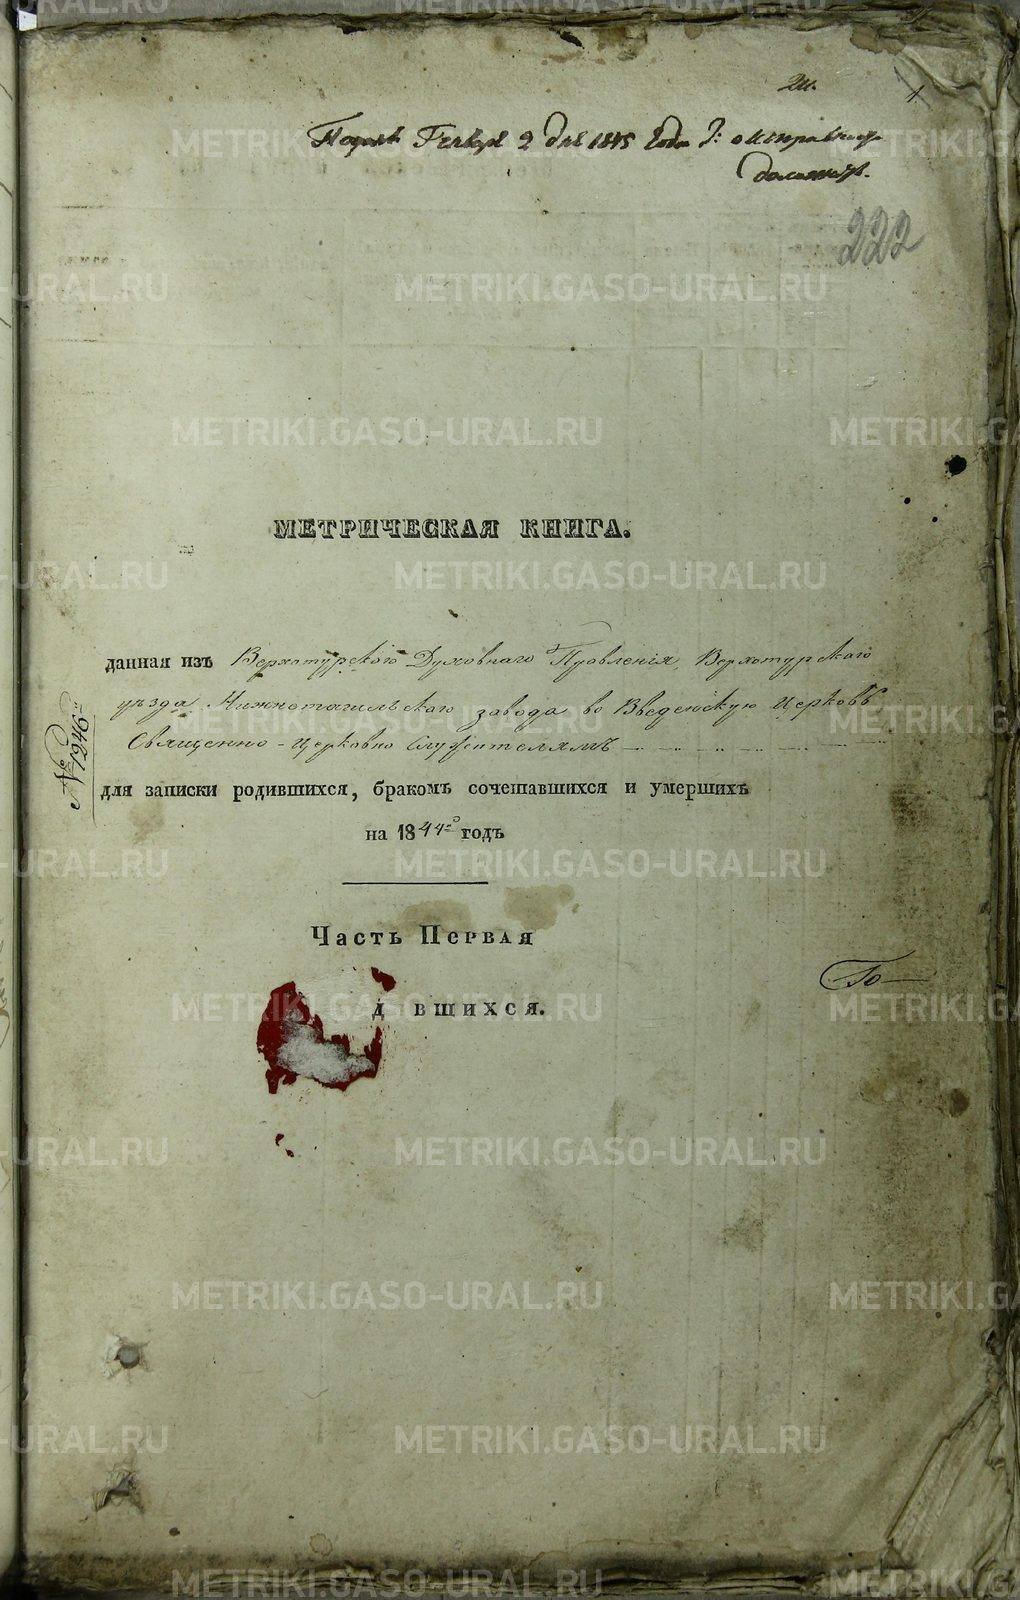 1
Генваря 2 дня 1845 года
222
МЕТРИЧЕСКАЯ КНИГА.
данная изъ Верхотурскаго Духовнаго Правленія, Верхотурскаго
уѣзда Нижнетагильскаго завода во Введенскую Церковь
Священно-Церковно Служителямъ
№ 1946
для записки родившихся, бракомъ сочетавшихся и умершихъ
на 1844й годъ
Часть Первая
По
д вшихся.
METRIKI.GASO-URAL.RU